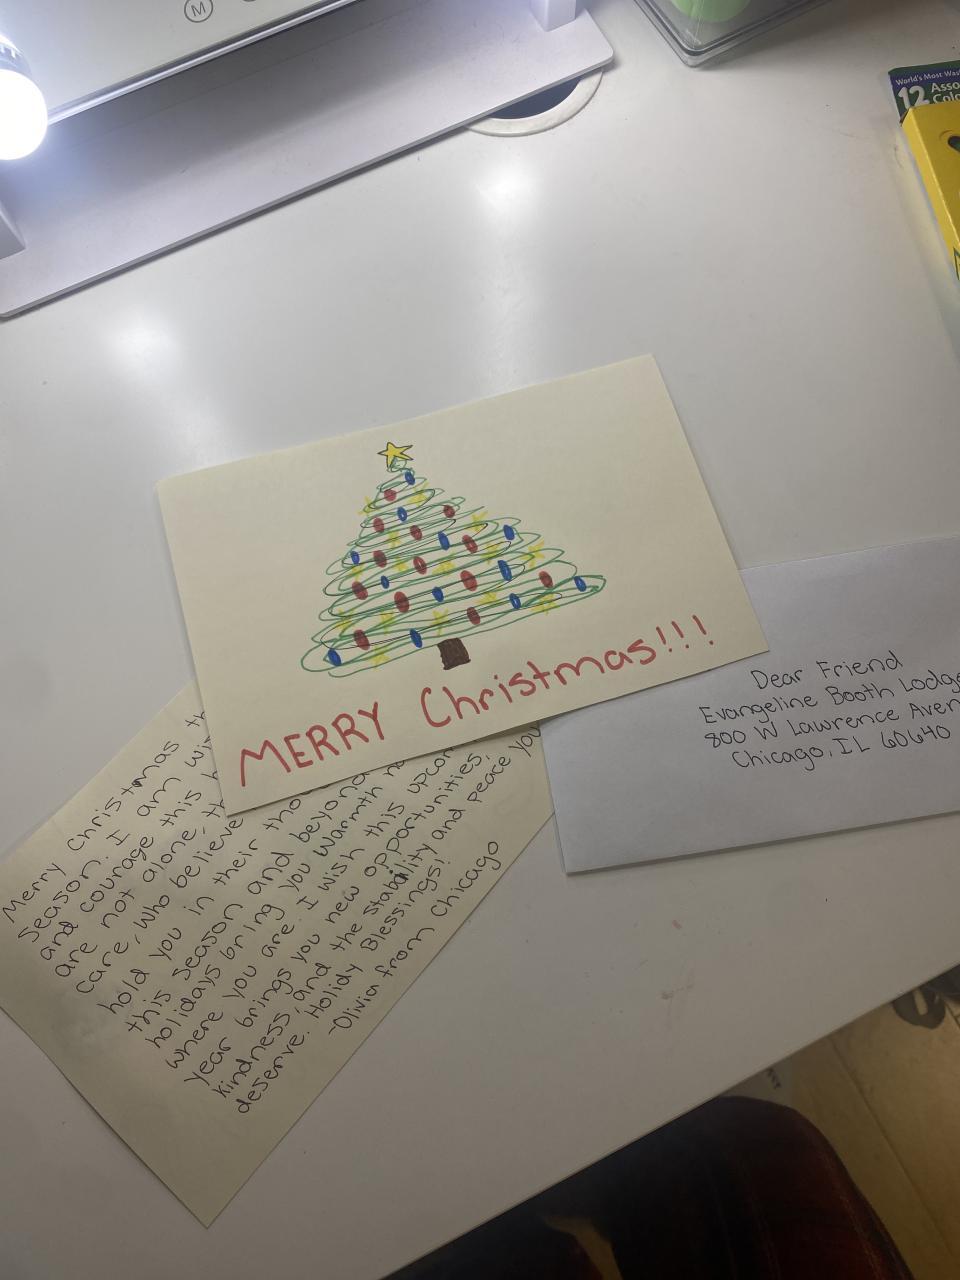 M
World's Most Was
12 Asso
Colo
MERRY Christmas!!!
Dear Friend
Evangeline Booth Lodge
800 W Lawrence Aven
Chicago, IL 60640
Merry Christmas th
season. I am wi
and courage this h
are not alone, th
care, who believe
hold you in their tho
this season and beyond
holidays bring you warmth
where you are. I wish this upcom
year brings you new opportunities,
kindness, and the stability and peace you
deserve. Holiday Blessings!
-Olivia from Chicago